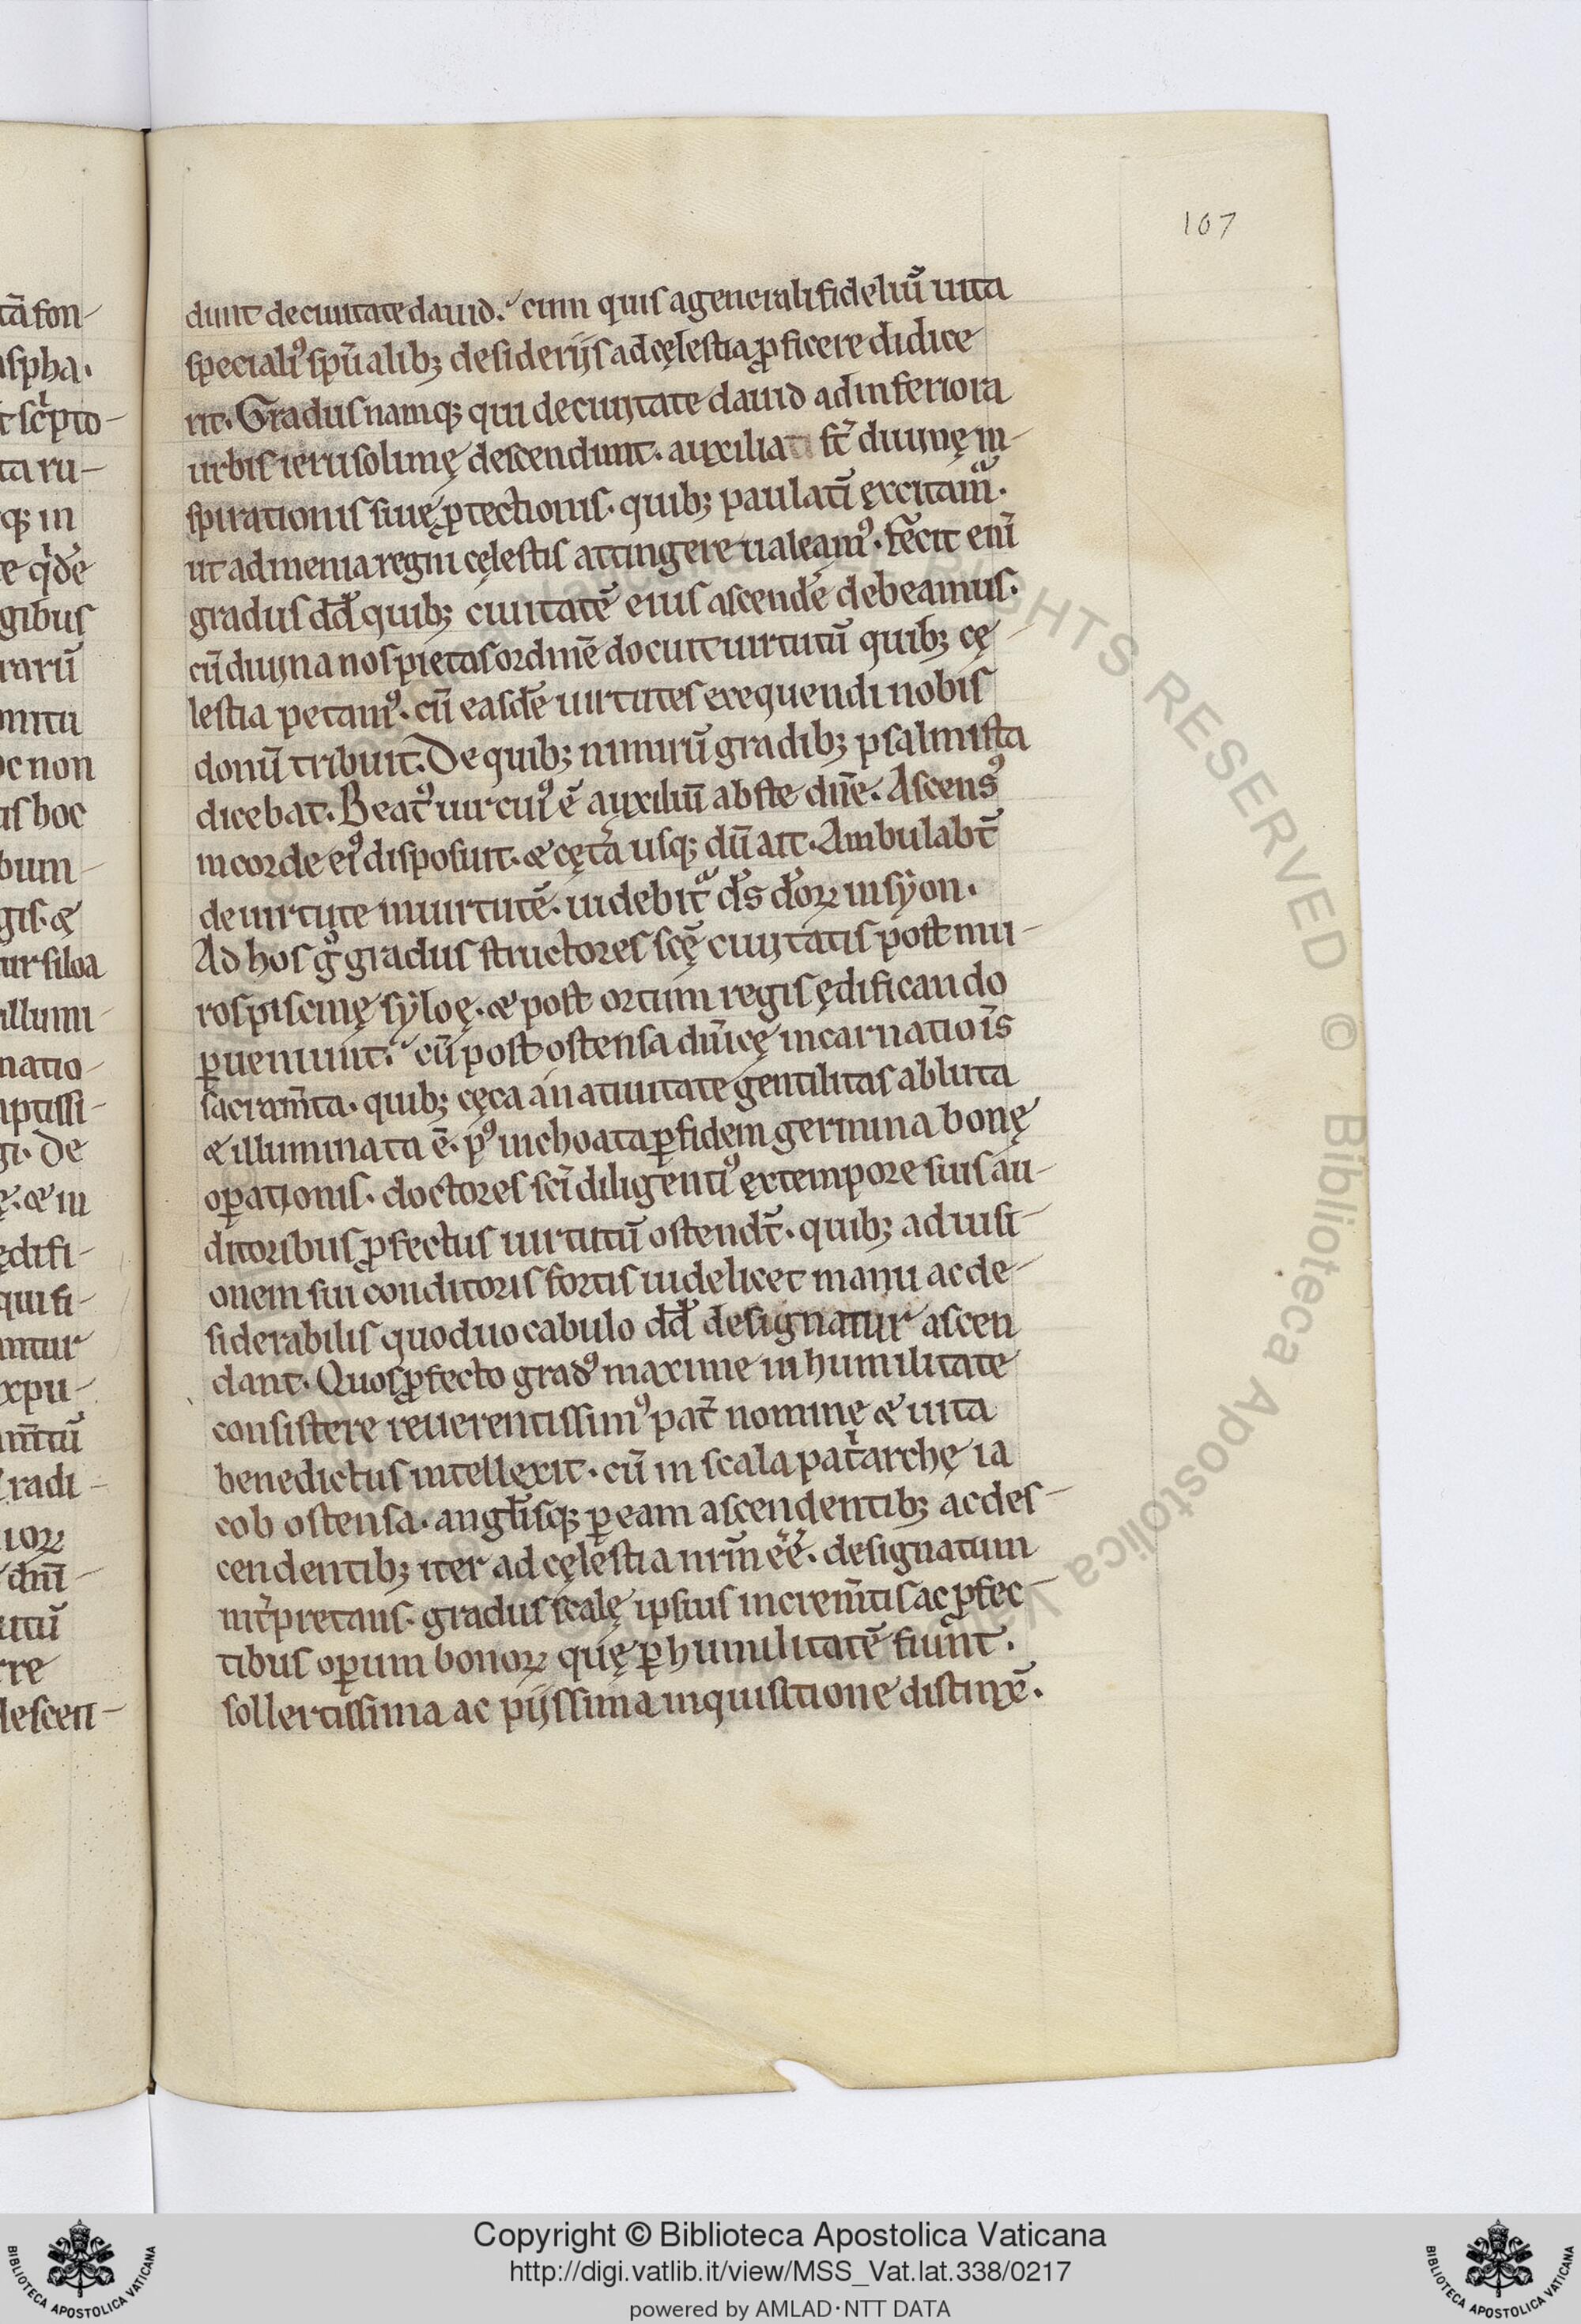 107
dunt de ciuitate dauid. cum quis a generali fideliū uita
speciali᷒ sp̄ualib; desiderijs ad cęlestia ꝓficere didice
rit. Gradus namq; qui de ciuitate dauid ad inferiora
urbis ierusolimę descendunt. auxilia st̄ diuinę in-
spirationis siue ꝓtectionis. quib; paulatī excitam̃.
ut ad menia regni cęlestis attingere ualeam᷒. fecit enī
gradus dd̄ quib; ciuitatē eius ascendē debeamus.
cū diuina nos pietas ordinē docuit uirtutū quib; cę
lestia petam᷒. cū easdē uirtutes exequendi nobis
donū tribuit. De quib; nimirū gradib; psalmista
dicebat. Beat᷒ uir cui᷒ ē auxiliū abs te dn̄e. Ascens᷒
in corde ei᷒ disposuit. & cęta usq; dū ait. Ambulabt̄
de uirtute in uirtutē. uidebit᷑ ds̄ deoꝝ in syon.
Ad hos g̊ gradus structores scę̄ ciuitatis post mu-
ros piscinę syloę. & post ortum regis ędificando
ꝑueniunt. cū post ostensa dn̄icę incarnatiōis
sacram̄ta. quib; cęca a natiuitate gentilitas abluta
& illuminata ē. p᷒ inchoata ꝑ fidem germina bonę
oꝑationis. doctores sc̄i diligenti᷒ ex tempore suis au-
ditoribus ꝓfectus uirtutū ostendt̄. quib; ad uisi-
onem sui conditoris fortis uidelicet manu ac de-
siderabilis quod uocabulo dd̄ designatur ascen
dant. Quos ꝓfecto grad᷒ maxime in humilitate
consistere reuerentissim᷒ pat̄ nomine & uita
benedictus intellexit. cū in scala pat̄archę ia
cob ostensa. angl̄isq; ꝑ eam ascendentib; ac des-
cendentib; iter ad cęlestia nr̄m eē. designatum
int̄pretans. gradus scalę ipsius increm̄tis ac ꝓfec-
tibus oꝑum bonoꝝ quę ꝑ humilitatē fiunt.
sollertissima ac pijssima inquisitione distinxē.
RIGHTS RESERVED © Biblioteca Apostolica Vaticana
Copyright © Biblioteca Apostolica Vaticana
http://digi.vatlib.it/view/MSS_Vat.lat.338/0217
powered by AMLAD·NTT DATA
BIBLIOTECA APOSTOLICA VATICANA
BIBLIOTECA APOSTOLICA VATICANA